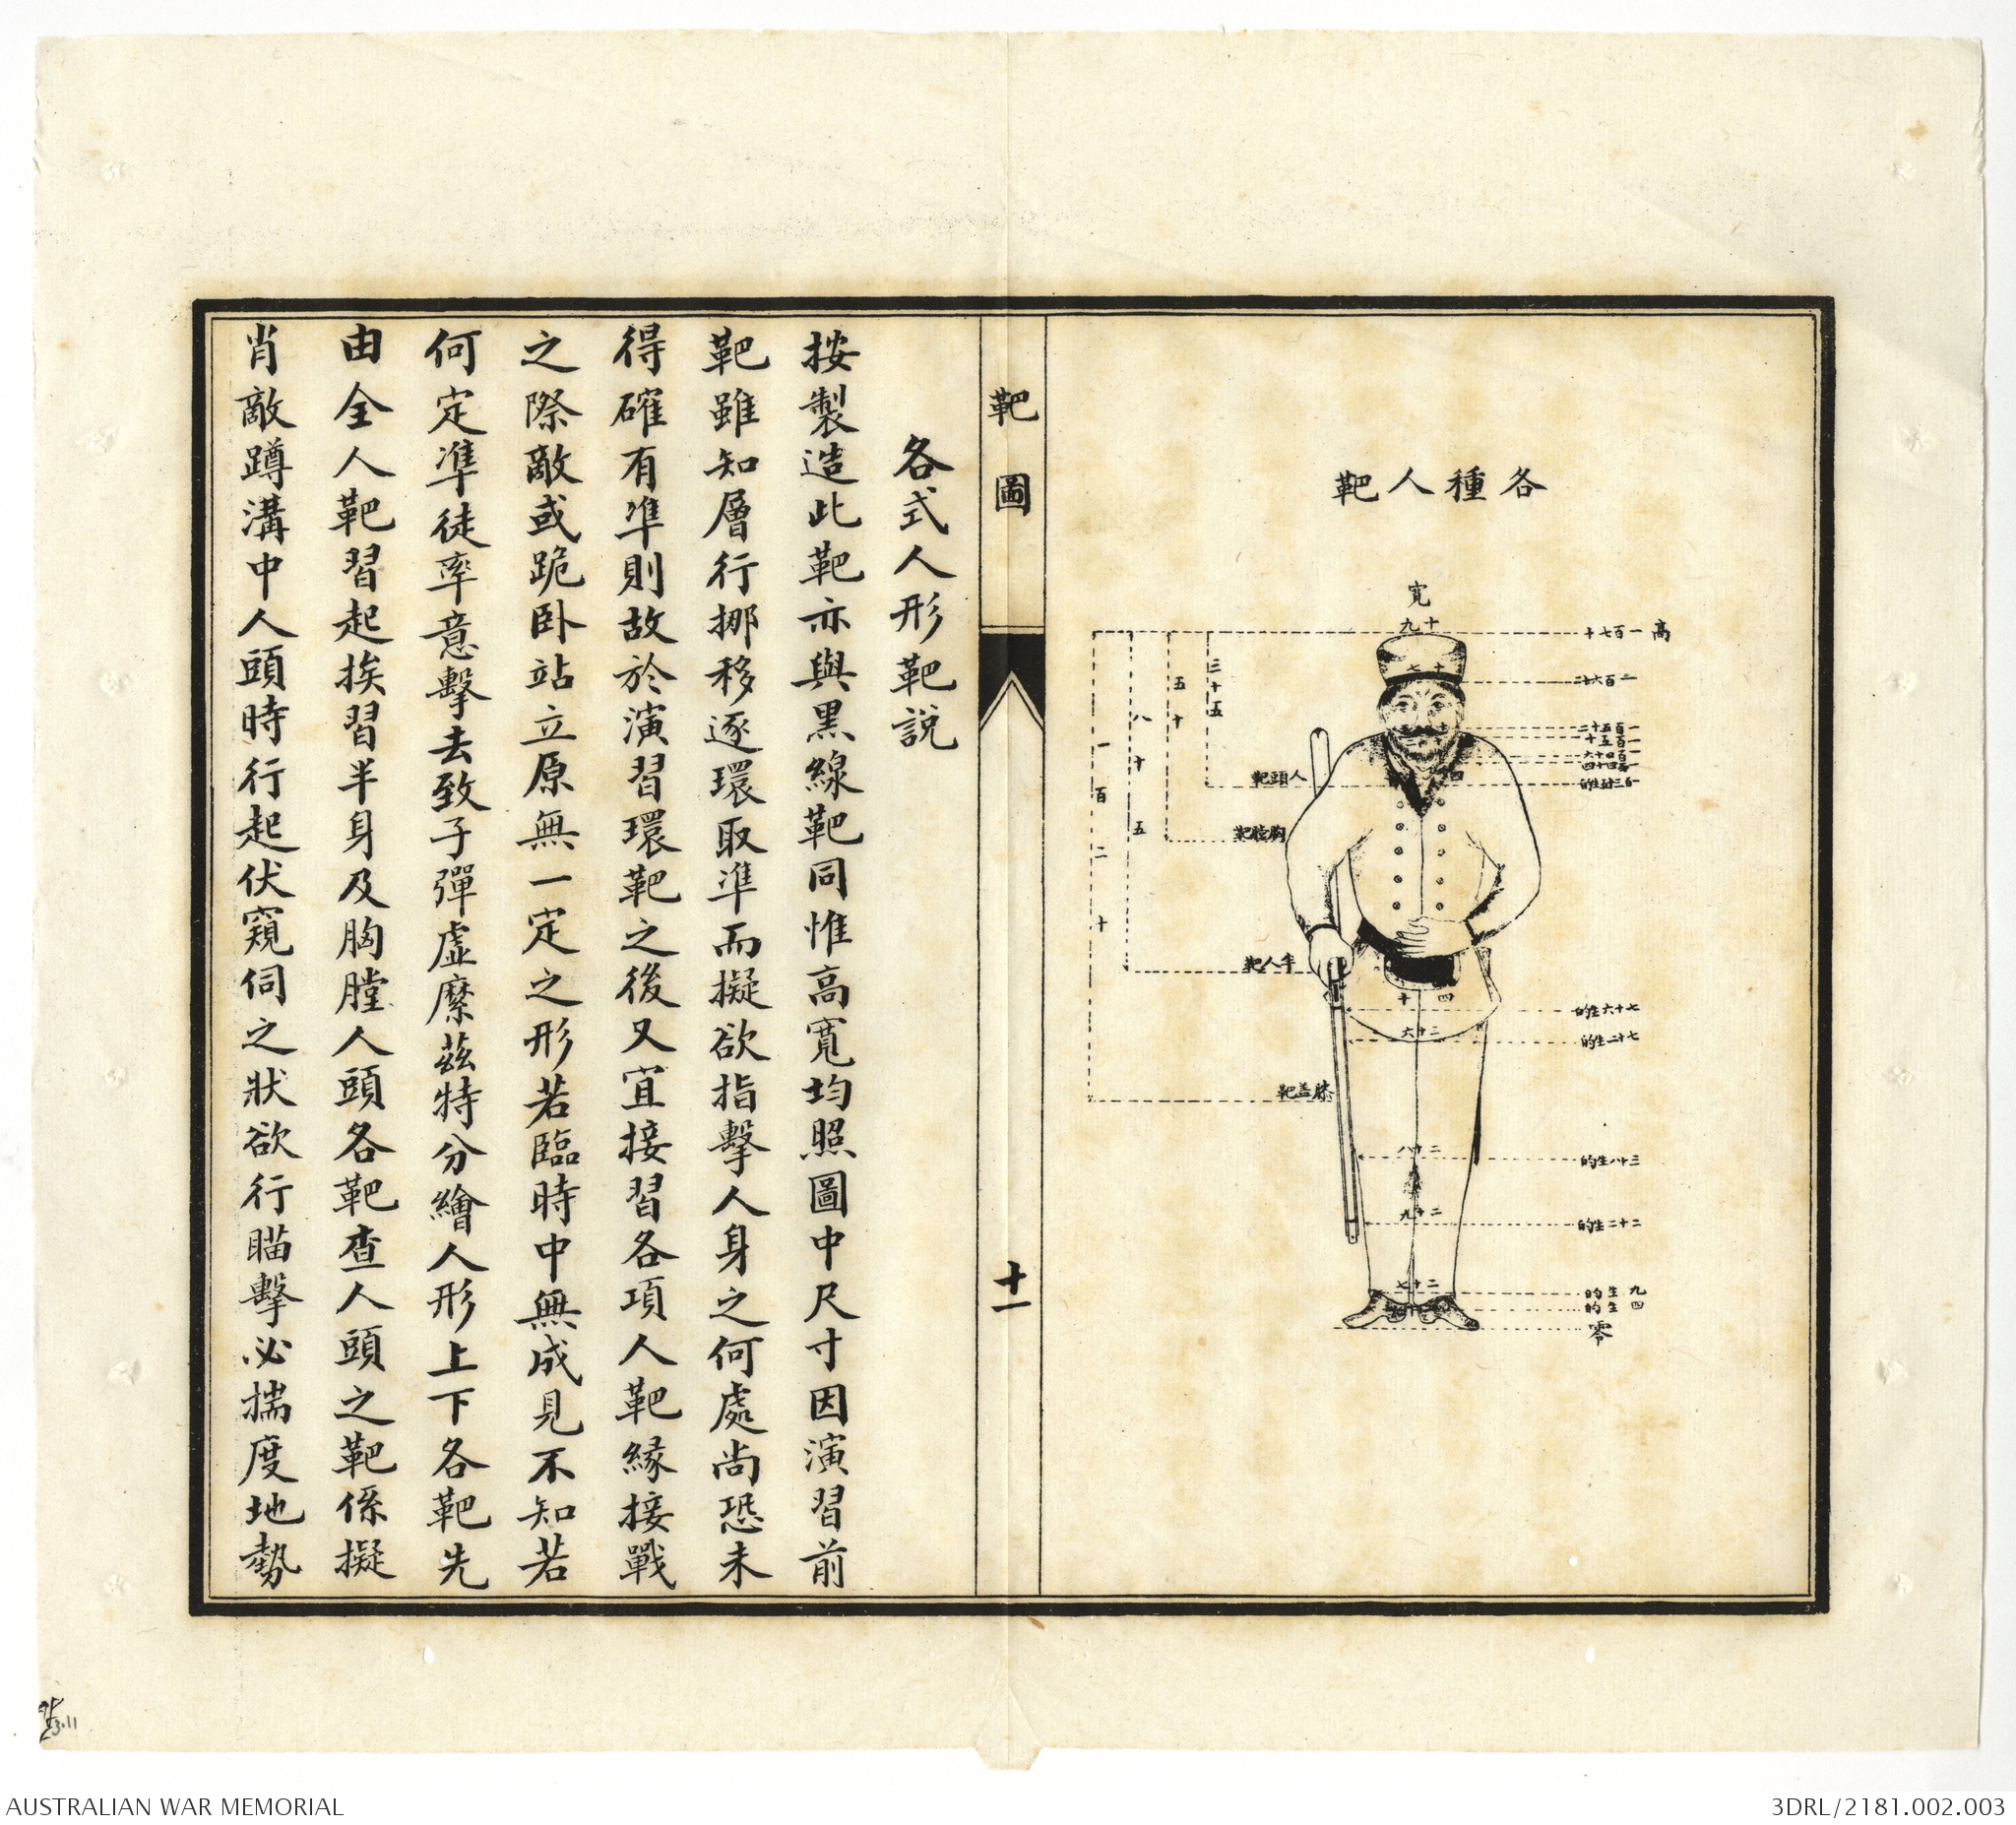 各種人靶
寬
十九
高
一百七十
二百六十二
三十五
五十
八十五
一百二十
人頭靶
胸膛靶
半人靶
膝盖靶
四十
七十六生的
二十六
七十二生的
二十八
三十八生的
二十九
二十二生的
二十七
九生的
四生的
零
靶圖
十一
各式人形靶說
按製造此靶亦與黑線靶同惟高寬均照圖中尺寸因演習前
靶雖知層行挪移逐環取準而擬欲指擊人身之何處尚恐未
得確有準則故於演習環靶之後又宜接習各項人靶緣接戰
之際敵或跪卧站立原無一定之形若臨時中無成見不知若
何定準徒率意擊去致子彈虛縻茲特分繪人形上下各靶先
由全人靶習起挨習半身及胸膛人頭各靶查人頭之靶係擬
肖敵蹲溝中人頭時行起伏窺伺之狀欲行瞄擊必揣度地勢
AUSTRALIAN WAR MEMORIAL
3DRL/2181.002.003